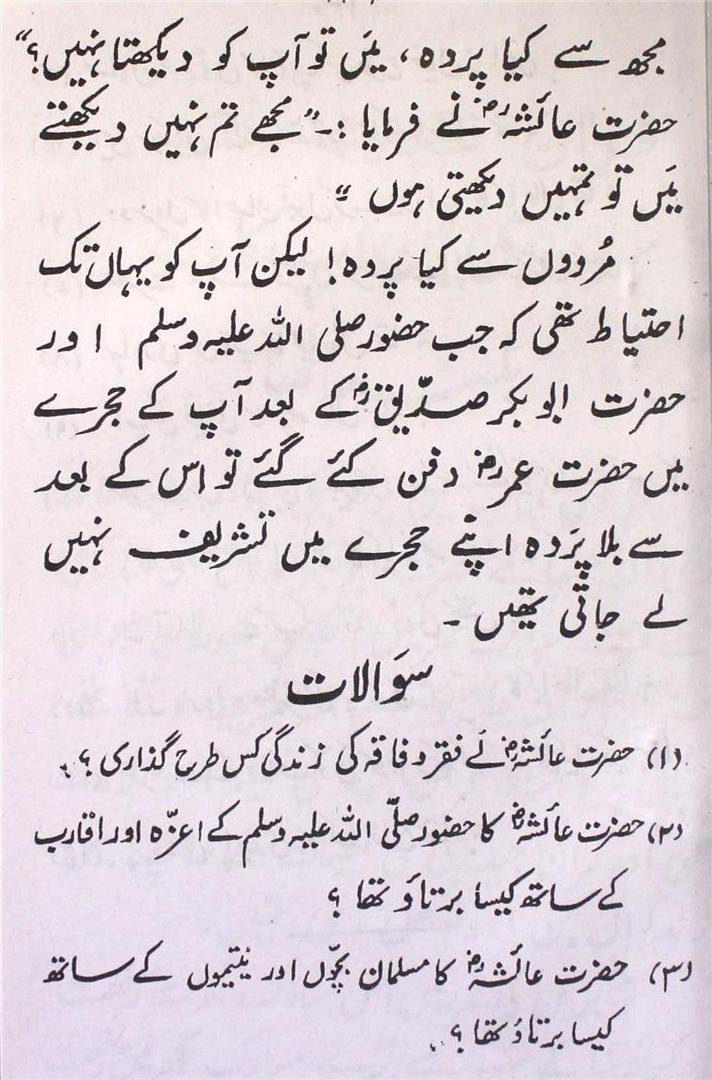 مجھ سے کیا پردہ، میَں تو آپ کو دیکھتا نہیں؟“
حضرت عائشہؓ نے فرمایا :۔ ”مجھے تم نہیں دیکھتے
میَں تو تمہیں دیکھتی ہوں“
مُردوں سے کیا پردہ! لیکن آپ کو یہاں تک
احتیاط تھی کہ جب حضور صلی اللہ علیہ وسلم اور
حضرت ابو بکر صدّیقؓ کے بعد آپ کے حجرے
میں حضرت عمرؓ دفن کئے گئے تو اس کے بعد
سے بلا پَردہ اپنے حجرے میں تشریف نہیں
لے جاتی تھیں ۔
سوَالات
(۱) حضرت عائشہؓ نے فقر و فاقہ کی زندگی کس طرح گذاری؟
(۲) حضرت عائشہؓ کا حضور صلّی اللہ علیہ وسلم کے اعزّہ اور اقارب
کے ساتھ کیسا برتاؤ تھا ؟
(۳) حضرت عائشہؓ کا مسلمان بچّوں اور یتیموں کے ساتھ
کیسا برتاؤ تھا ؟